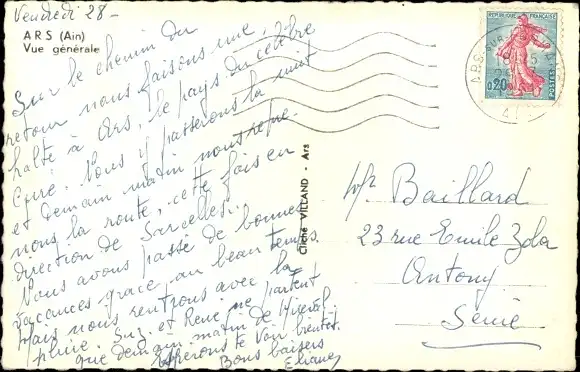 Vendredi 28 -
ARS (Ain)
Vue générale
Sur le chemin du
retour nous faisons une
halte à Ars, le pays du célèbre
Curé. Nous y passerons la nuit
et demain matin nous repre-
nons la route, cette fois en
direction de Sarcelles...
Nous avons passé de bonnes
vacances grâce au beau temps.
Mais nous rentrons avec la
pluie. Suz. et René ne partent
que demain matin de
espérons te voir bientôt.
Bons baisers
Eliane
Cliché VILLAND - Ars
REPUBLIQUE FRANÇAISE
0,20
POSTES
Baillard
23 rue Emile Zola
Antony
Seine